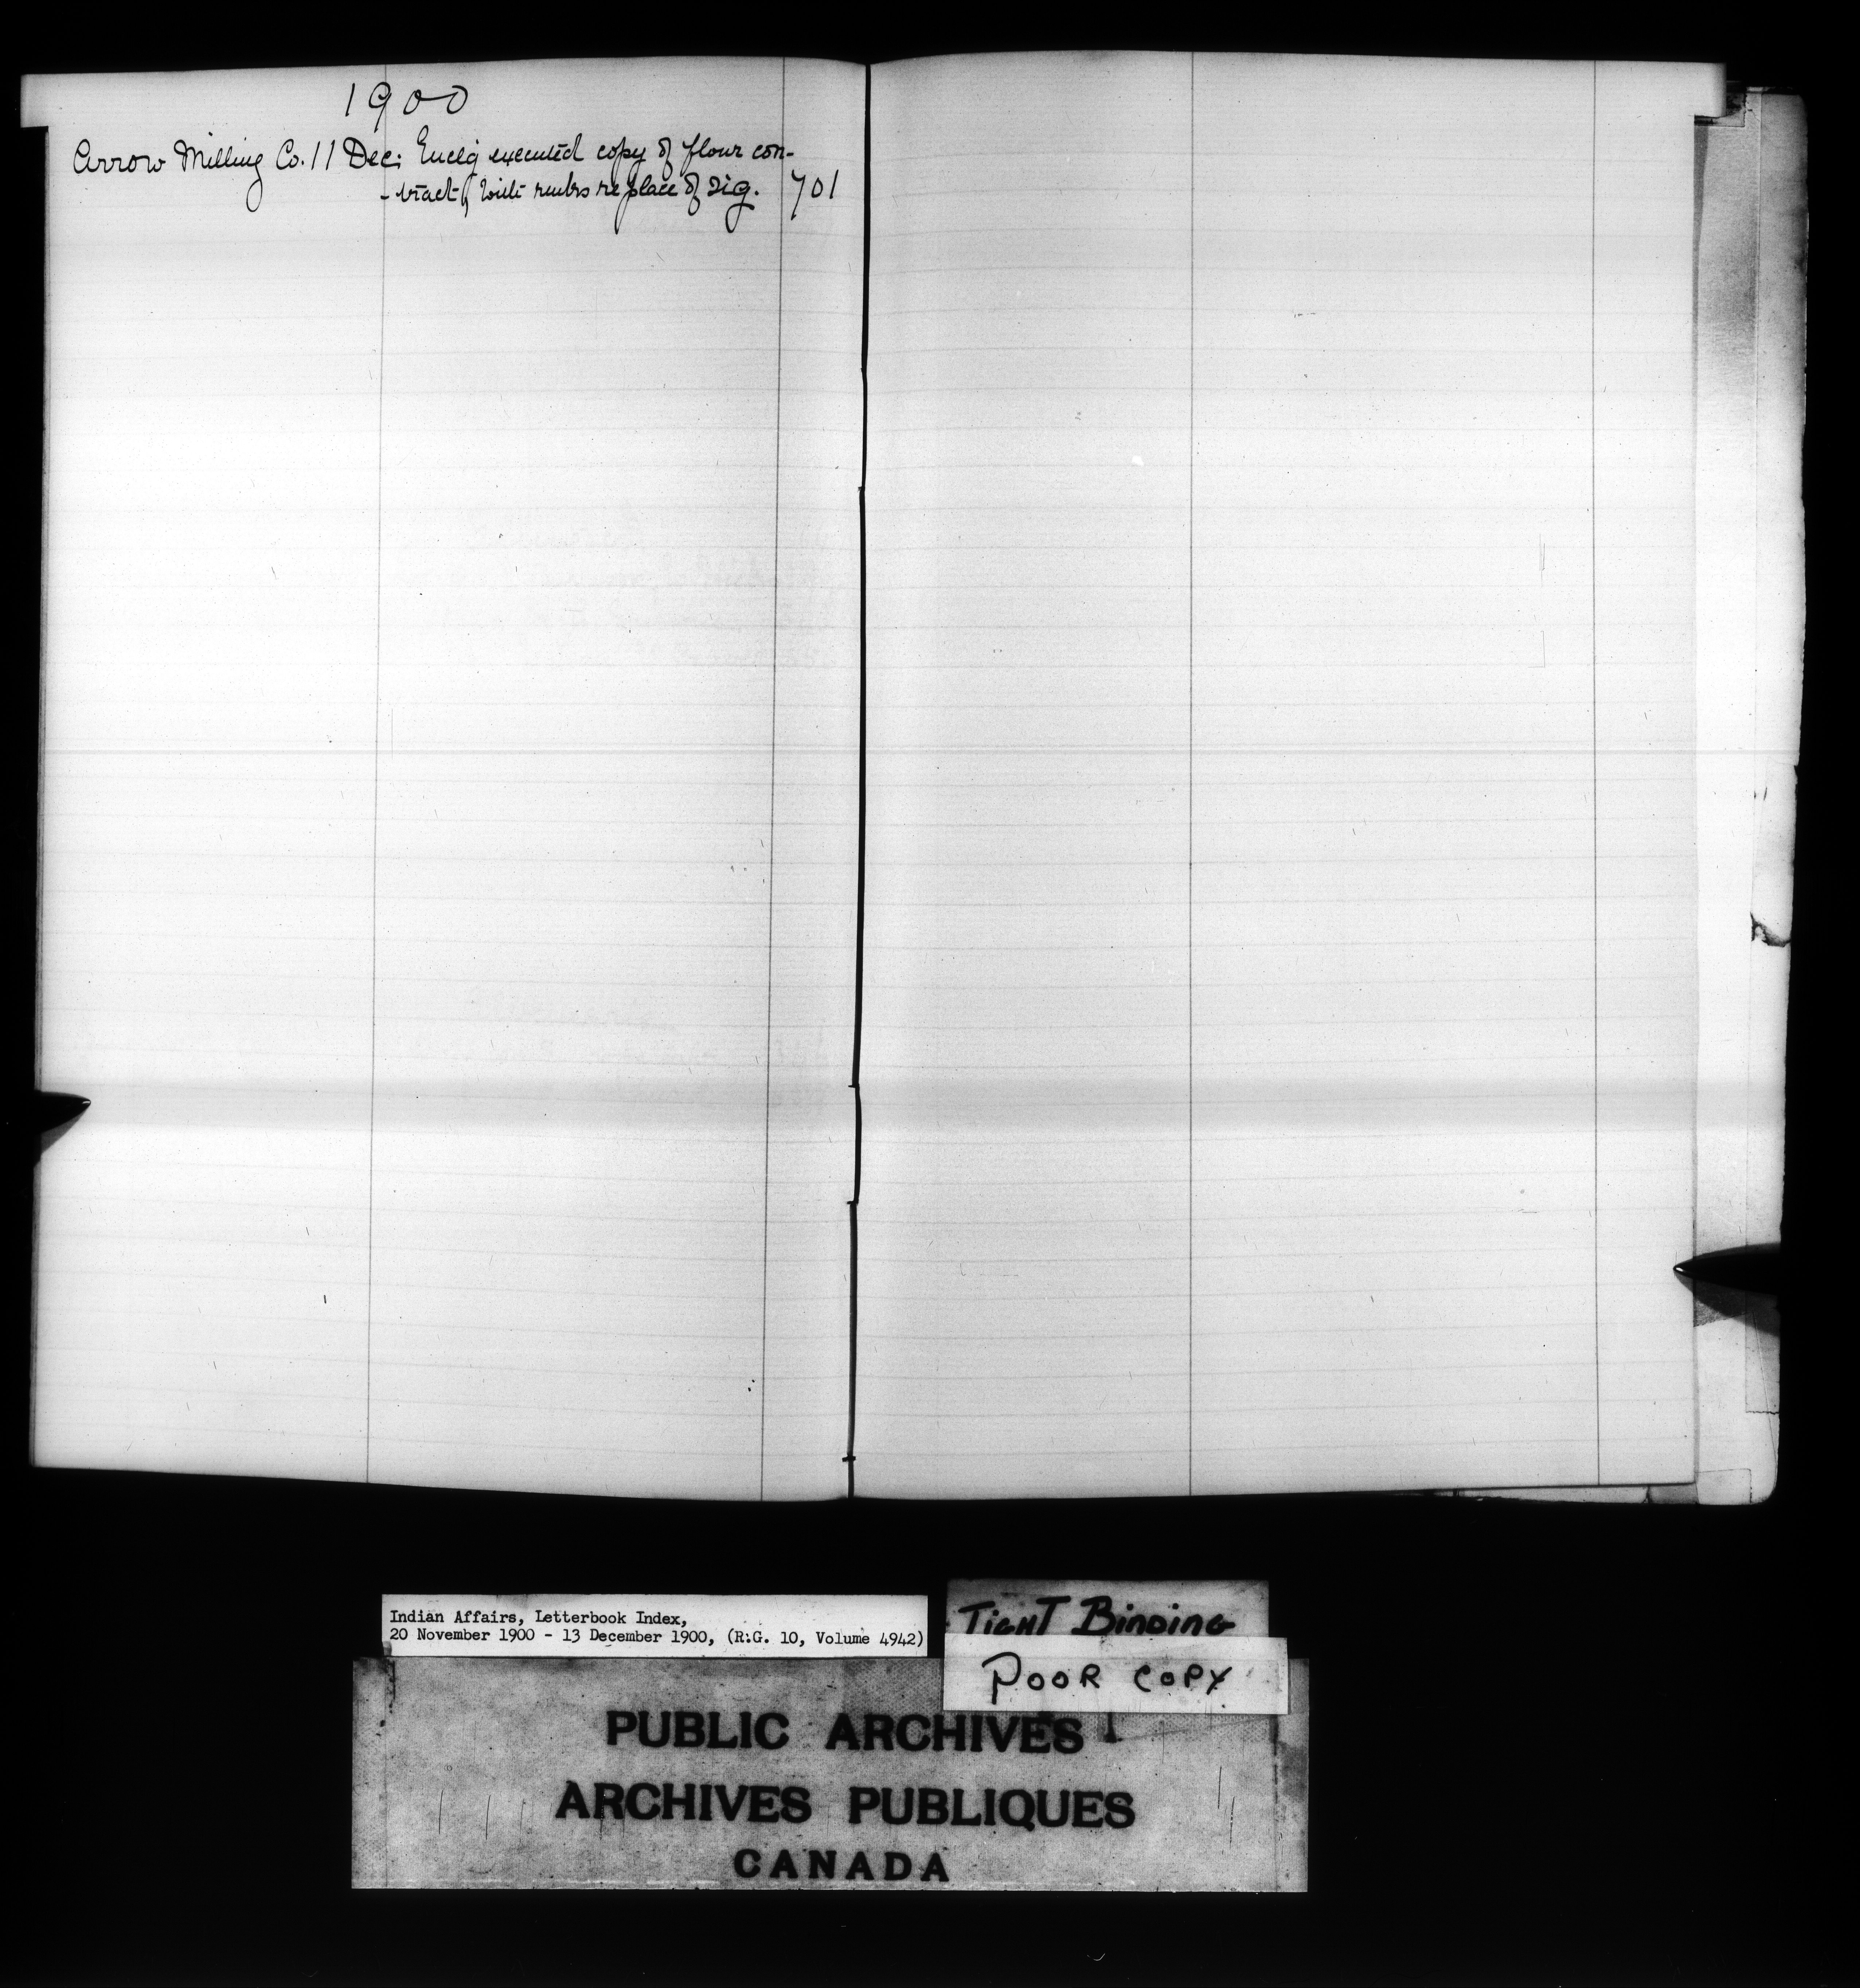 1900
Arrow Milling Co. 11 Dec: Enclg executed copy of flour con-
-tract, with rmks re place of sig. 701
Indian Affairs, Letterbook Index,
20 November 1900 - 13 December 1900, (R.G. 10, Volume 4942)
TIGHT BINDING
POOR COPY
PUBLIC ARCHIVES
ARCHIVES PUBLIQUES
CANADA